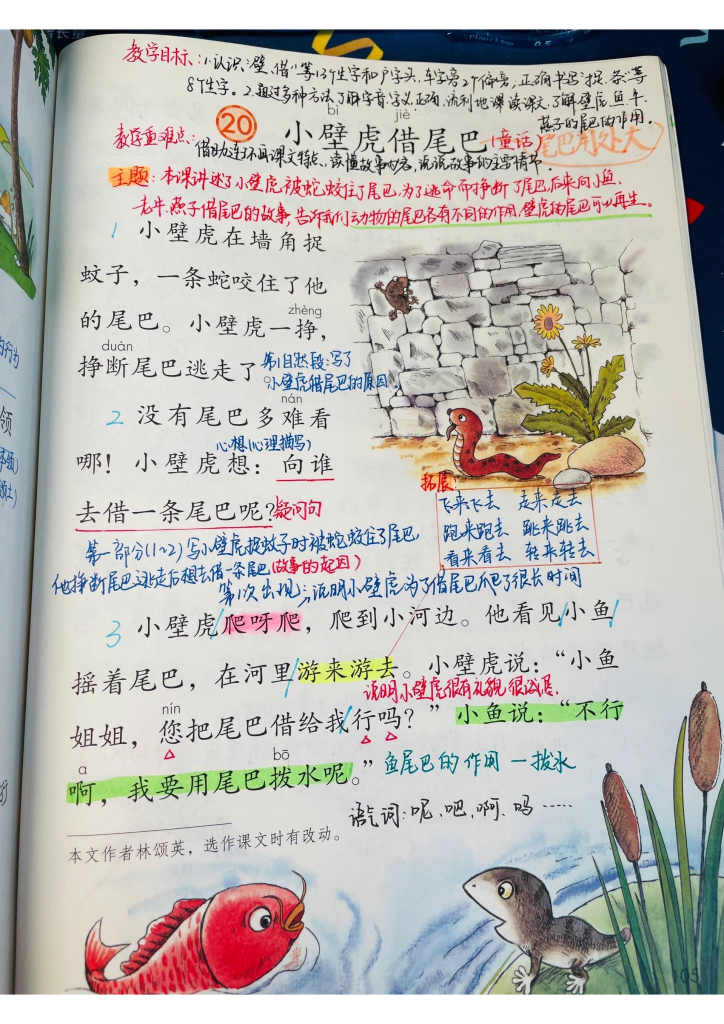 教学目标:1.认识"壁、借"等13个生字和户字头、车字旁2个偏旁,正确书写"捉、条"等
8个生字。2.通过多种方法了解字音、字义,正确、流利地课读课文,了解壁虎、鱼、牛、
燕子的尾巴的作用。
bì jiè
20 小壁虎借尾巴(童话)尾巴用处大
教学重难点:借助连环画课文特点,读懂故事内容,说说故事的主要情节。
主题:本课讲述了小壁虎被蛇咬住了尾巴,为了逃命而挣断了尾巴,后来向小鱼、
老牛、燕子借尾巴的故事,告诉我们动物的尾巴各有不同的作用,壁虎的尾巴可以再生。
1 小壁虎在墙角捉
蚊子,一条蛇咬住了他
zhèng
的尾巴。小壁虎一挣,
duàn
挣断尾巴逃走了。第1自然段:写了
小壁虎借尾巴的原因
nán
2 没有尾巴多难看
心想(心理描写)
哪!小壁虎想:向谁
去借一条尾巴呢?疑问句
拓展:
飞来飞去 走来走去
跑来跑去 跳来跳去
看来看去 转来转去
第一部分(1~2)写小壁虎捉蚊子时被蛇咬住了尾巴
他挣断尾巴逃走后想去借一条尾巴(故事的起因)
第1次出现:说明小壁虎为了借尾巴爬了很长时间
3 小壁虎爬呀爬,爬到小河边。他看见小鱼
摇着尾巴,在河里游来游去。小壁虎说:“小鱼
说明小壁虎很有礼貌,很诚恳
nín
姐姐,您把尾巴借给我行吗?”小鱼说:“不行
ɑ bō
啊,我要用尾巴拨水呢。”鱼尾巴的作用—拨水
语气词:呢、吧、啊、吗……
本文作者林颂英,选作课文时有改动。
105